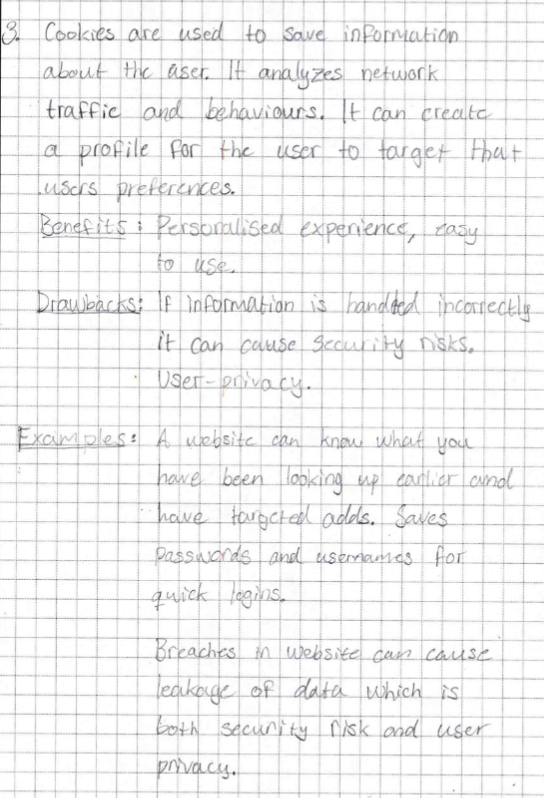 3. Cookies are used to save information
about the user. It analyzes network
traffic and behaviours. It can create
a profile for the user to target that
users preferences.
Benefits: Personalised experience, easy
to use.
Drawbacks: If information is handled incorrectly
it can cause security risks.
User-privacy.
Examples: A website can know what you
have been looking up earlier and
have targeted adds. Saves
passwords and usernames for
quick logins.
Breaches in website can cause
leakage of data which is
both security risk and user
privacy.